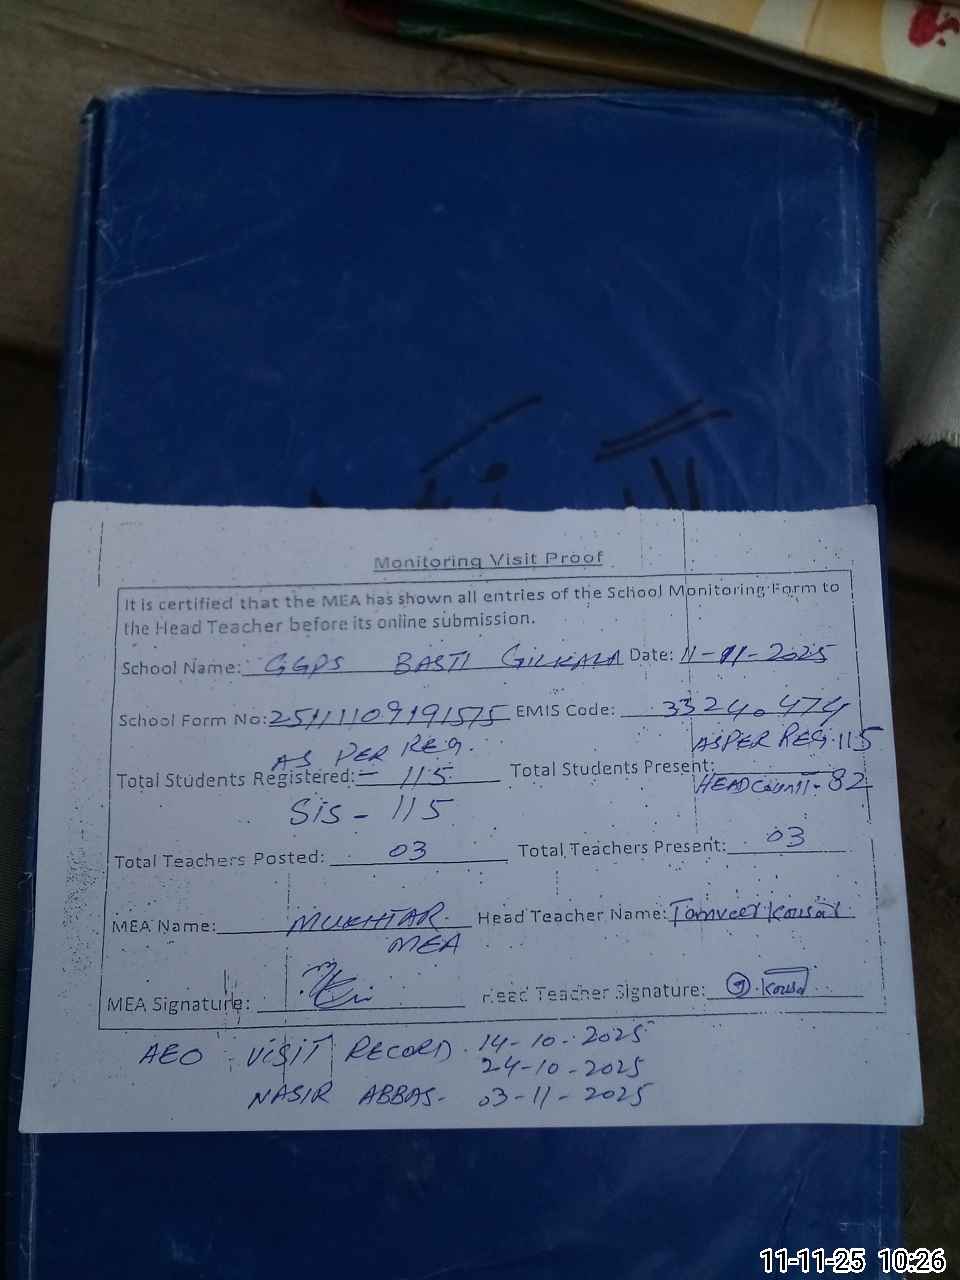 Monitoring Visit Proof
It is certified that the MEA has shown all entries of the School Monitoring Form to
the Head Teacher before its online submission.
School Name: GGPS BASTI GILKALA Date: 11-11-2025
School Form No: 25111109191575 EMIS Code: 33240474
AS PER REG.
Total Students Registered: - 115
SIS - 115
ASPER REG. 115
Total Students Present:
HEADCOUNT - 82
Total Teachers Posted: 03 Total Teachers Present: 03
MEA Name: MUKHTAR Head Teacher Name: Tanveer Kousar
MEA
MEA Signature: Head Teacher Signature:
AEO VISIT RECORD. 14-10-2025
24-10-2025
NASIR ABBAS- 03-11-2025
11-11-25 10:26